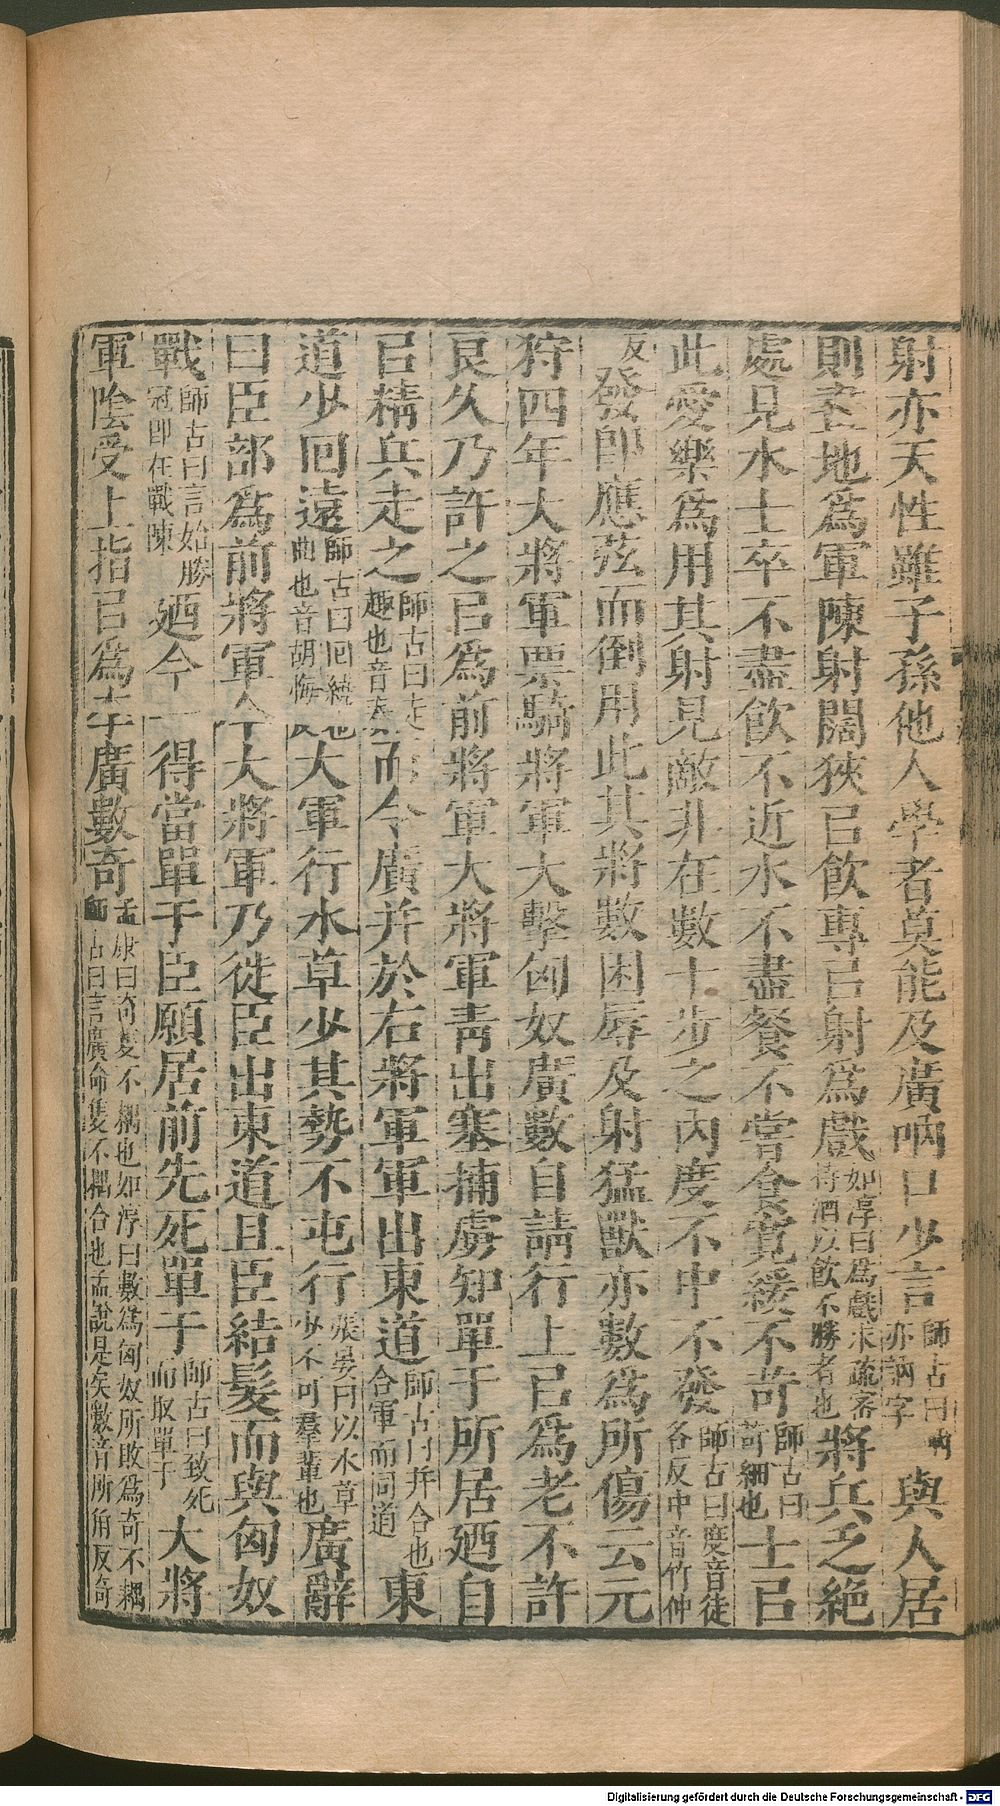 射亦天性雖子孫他人學者莫能及廣吶口少言師古曰吶亦訥字與人居
則畫地爲軍陳射闊狹㠯飲專㠯射爲戲如淳曰爲戲求疏密持酒以飲不勝者也將兵乏絶
處見水士卒不盡飲不近水不盡餐不嘗食寬緩不苛師古曰苛細也士㠯
此愛樂爲用其射見敵非在數十步之內度不中不發師古曰度音徒各反中音竹仲
反發卽應弦而倒用此其將數困辱及射猛獸亦數爲所傷云元
狩四年大將軍票騎將軍大擊匈奴廣數自請行上㠯爲老不許
良久乃許之㠯爲前將軍大將軍靑出塞捕虜知單于所居廼自
㠯精兵走之師古曰走趣也音奏而令廣并於右將軍軍出東道師古曰并合也合軍而同道東
道少回遠師古曰回繞也曲也音胡悔反大軍行水草少其勢不屯行張晏曰以水草少不可羣輩也廣辭
曰臣部爲前將軍今大將軍乃徙臣出東道且臣結髮而與匈奴
戰師古曰言始勝冠卽在戰陳廼今一得當單于臣願居前先死單于師古曰致死而取單于大將
軍陰受上指㠯爲李廣數奇孟康曰奇隻不耦也如淳曰數爲匈奴所敗爲奇不耦師古曰言廣命隻不耦合也孟說是矣數音所角反奇
Digitalisierung gefördert durch die Deutsche Forschungsgemeinschaft - DFG